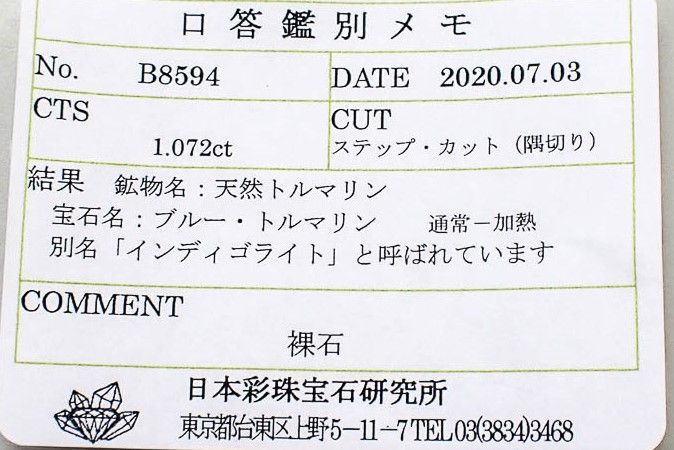 口答鑑別メモ
No. B8594 DATE 2020.07.03
CTS 1.072ct
CUT ステップ・カット(隅切り)
結果 鉱物名:天然トルマリン
宝石名:ブルー・トルマリン 通常－加熱
別名「インディゴライト」と呼ばれています
COMMENT
裸石
日本彩珠宝石研究所
東京都台東区上野5－11－7 TEL 03(3834)3468